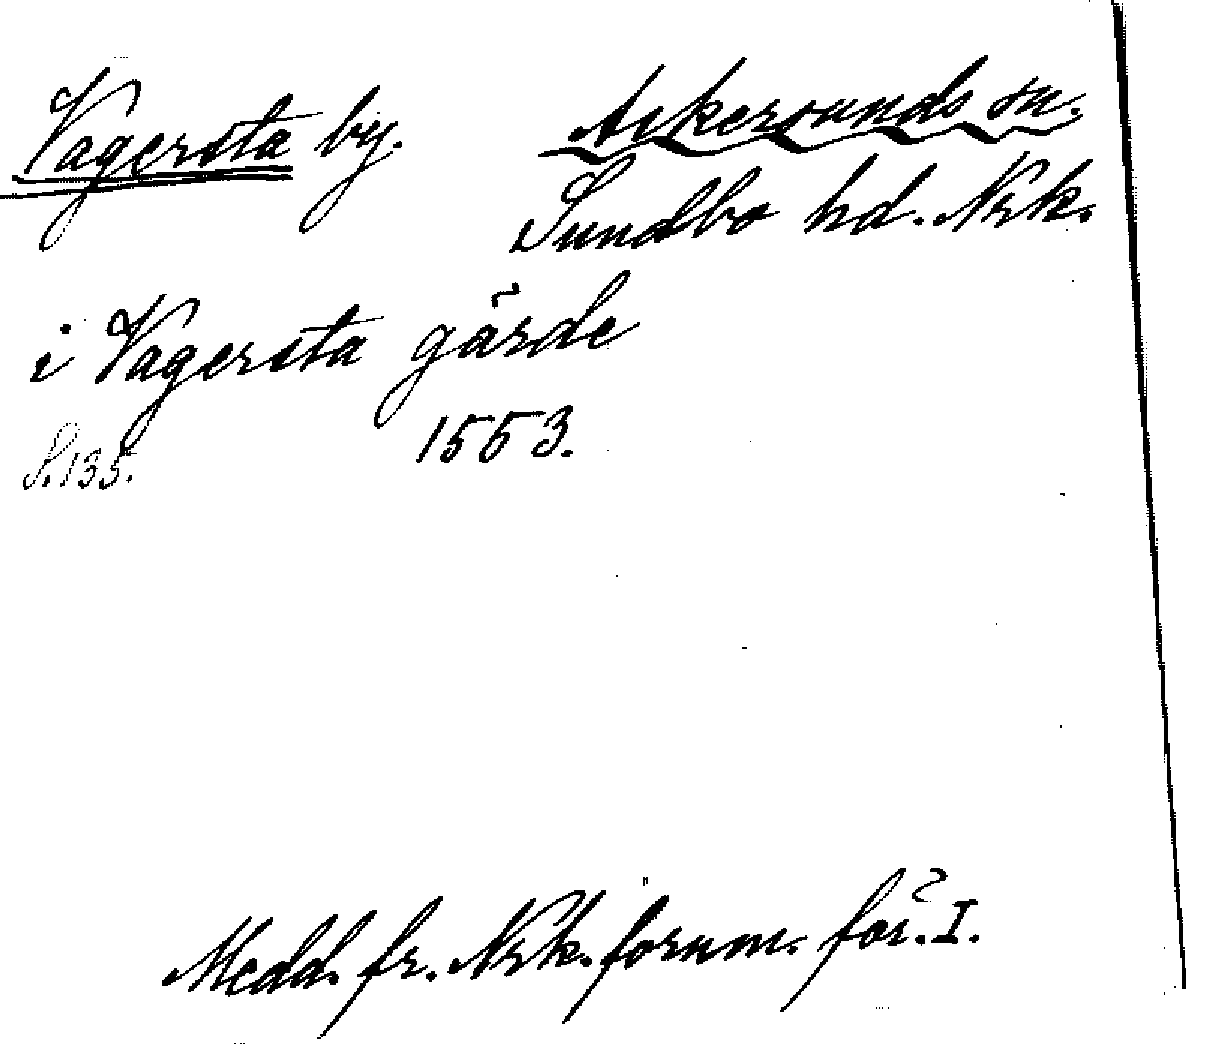 Vagersta by. Askersunds sn.
Sundbo hd. Nrk.
i Vagersta gärde
S. 135. 1553.
Medd. fr. Nrk. fornm. för. I.